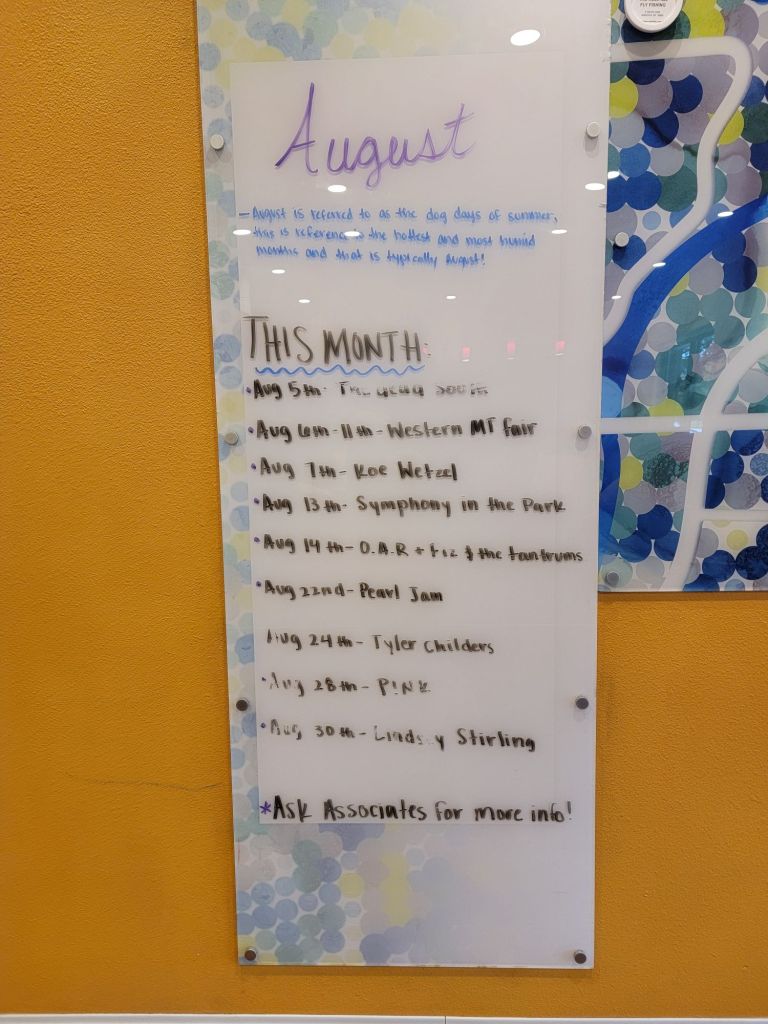 FLY FISHING
August
- August is referred to as the dog days of summer,
this is reference to the hottest and most humid
months and that is typically August!
THIS MONTH:
• Aug 5th-
• Aug 6th-11th - Western MT Fair
• Aug 7th - Koe Wetzel
• Aug 13th- Symphony in the Park
• Aug 14th - O.A.R + Fitz & the tantrums
• Aug 22nd - Pearl Jam
Aug 24th - Tyler Childers
• Aug 28th - P!NK
• Aug 30th - Lindsey Stirling
*Ask Associates for more info!